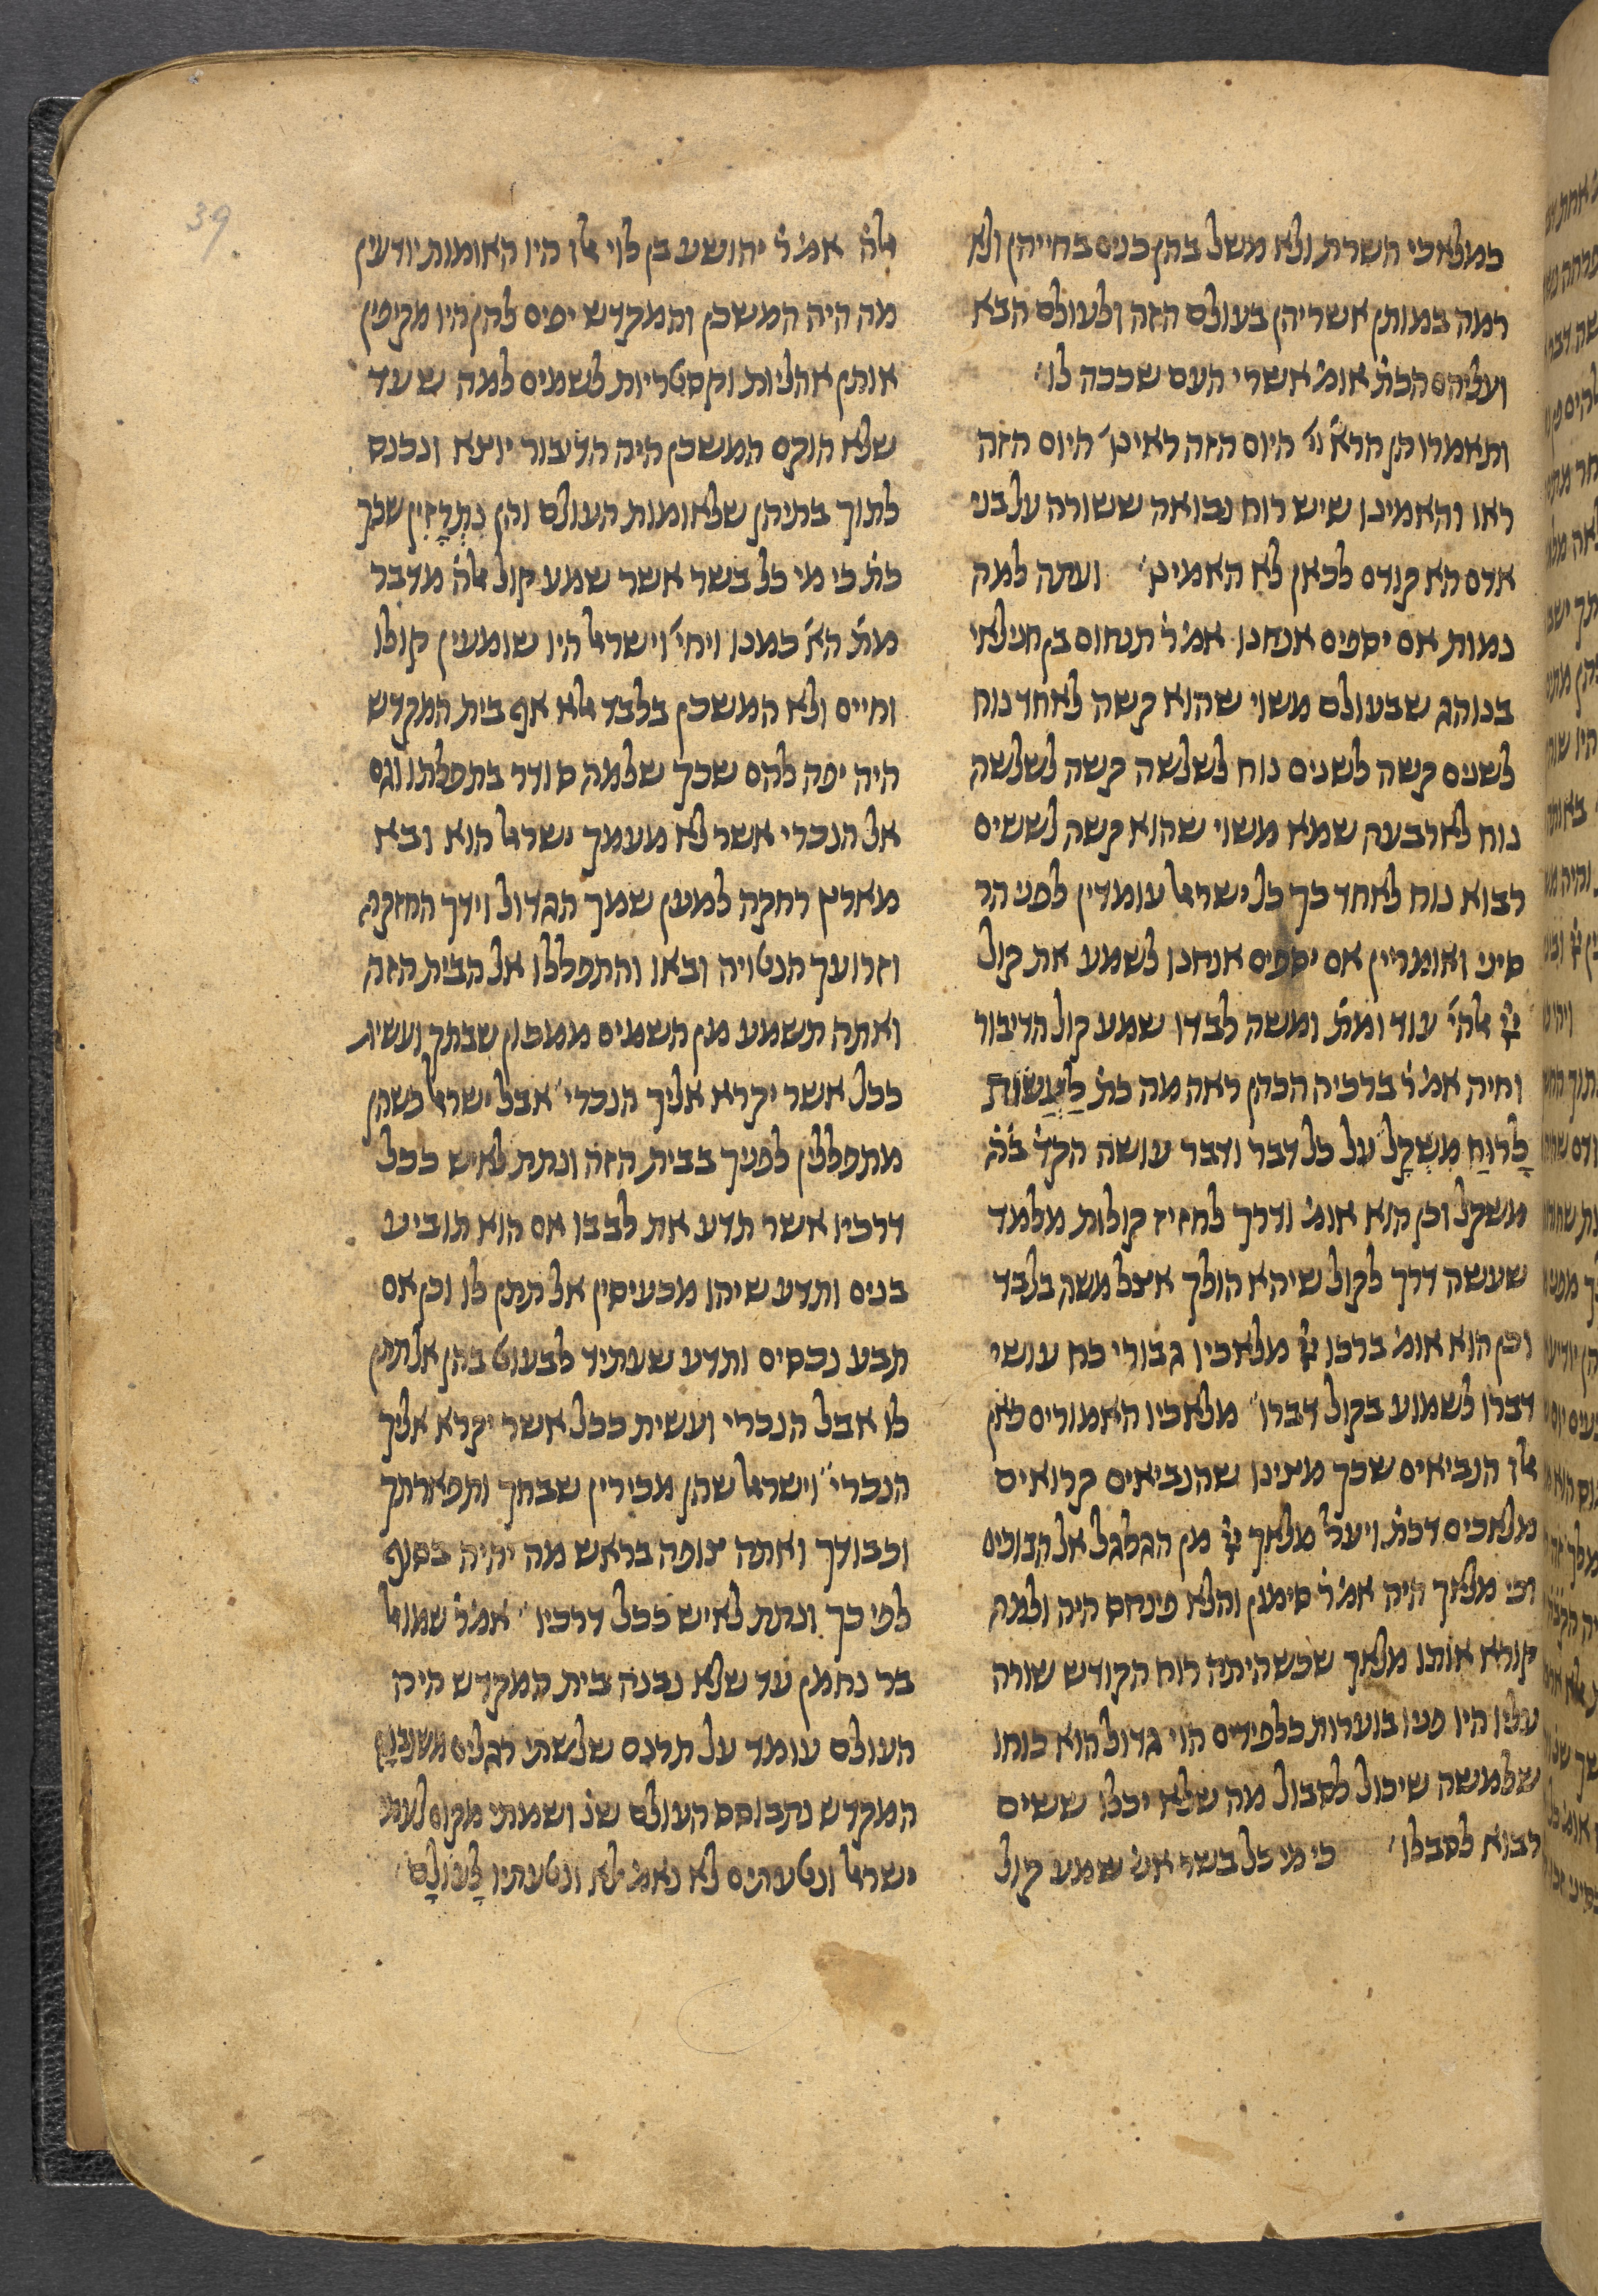 כמלאכי השרת ולא משל בהן כנים בחייהן ולא
רמה במותן אשריהן בעולם הזה ולעולם הבא
ועליהם הכת׳ אומ׳ אשרי העם שככה לו׳
ותאמרו הן הרא׳ יי׳ היום הזה ראינו׳ היום הזה
ראו והאמינו שיש רוח נבואה ששורה על בני
אדם הא קודם לכאן לא האמינו׳ ועתה למה
נמות אם יספים אנחנו אמ׳ ר׳ תנחום בן חנילאי
בנוהג שבעולם משוי שהוא קשה לאחד נוח
לשנים קשה לשנים נוח לשלשה קשה לשלשה
נוח לארבעה שמא משוי שהוא קשה לששים
רבוא נוח לאחד כך כל ישראל עומדין לפני הר
סיני ואומריין אם יספים אנחנו לשמע את קול
יי׳ אלהי׳ עוד ומת׳ ומשה לבדו שמע קול הדיבור
וחיה אמ׳ ר׳ ברכיה הכהן ראה מה כת׳ לַעֲשׂוֹת
לָרוּחַ מִשְׁקָל על כל דבר ודבר עושה הקד׳ ב׳ה׳
משקל וכן הוא אומ׳ ודרך לחזיז קולות מלמד
שעשה דרך לקול שיהא הולך אצל משה בלבד
וכן הוא אומ׳ ברכו יי׳ מלאכיו גבורי כח עושי
דברו לשמוע בקול דברו׳׳ מלאכיו האמורים כאן
אלו הנביאים שכך מצינו שהנביאים קרואים
מלאכים דכת׳ ויעל מלאך יי׳ מן הגלגל אל הבוכים
וכי מלאך היה אמ׳ ר׳ סימון והלא פינחס היה ולמה
קורא אותו מלאך שכשהיתה רוח הקודש שורה
עליו היו פניו בוערות כלפידים הוי גדול הוא כוחו
שלמשה שיכול לסבול מה שלא יכלו ששים
רבוא לסבלו׳ כי מי כל בשר אש׳ שמע קול
אלה׳ אמ׳ ר׳ יהושע בן לוי אלו היו האומות יודעין
מה היה המשכן והמקדש יפים להן היו מקיפין
אותן אהליות וקסטריות לשמים למה שעד
שלא הוקם המשכן היה הדיבור יוצא ונכנס
לתוך בתיהן שלאומות העולם והן נִתְרָזִין שכך
כת׳ כי מי כל בשר אשר שמע קול אלה׳ מדבר
מת׳ הא׳ כמנו ויחי׳ וישראל היו שומעין קולו
וחיים ולא המשכן בלבד אלא אף בית המקדש
היה יפה להם שכך שלמה סודר בתפלתו וגם
אל הנכרי אשר לא מעמך ישראל הוא ובא
מארץ רחקה למען שמך הגדול וידך החזקה
וזרועך הנטויה ובאו והתפללו אל הבית הזה
ואתה תשמע מן השמים ממכון שבתך ועשית
ככל אשר יקרא אליך הנכרי׳׳ אבל ישראל כשהן
מתפללין לפניך בבית הזה ונתת לאיש ככל
דרכיו אשר תדע את לבבו אם הוא תוביע
בנים ותדע שיהו מכעיסין אל תתן לו וכן אם
תבע נכסים ותדע שעתיד לבעוט בהן אל תתן
לו אבל הנכרי ועשית ככל אשר יקרא אליך
הנכרי׳׳ וישראל שהן מכירין שבחך ותפארתך
וכבודך ואתה צופה בראש מה יהיה בסוף
לפי כך ונתת לאיש ככל דרכיו׳׳ אמ׳ ר׳ שמואל
בר נחמן עד שלא נבנה בית המקדש היה
העולם עומד על תרנס שלשתי רגלים משנבנה
המקדש נתבוסס העולם שנ׳ ושמתי מקום לעמי
ישראל ונטעתים לא נאמ׳ אלא ונטעתיו לָעוֹלָם׳
39